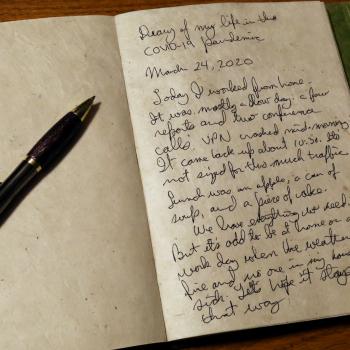 Diary of my life in the
COVID-19 pandemic
March 24, 2020
Today I worked from home.
It was mostly a slow day: a few
reports and two conference
calls. VPN crashed mid-morning
It came back up about 10:30. Its
not sized for this much traffic
Lunch was an apple, a can of
soup, and a piece of cake.
We have everything we need.
But it's odd to be at home on a
work day when the weather
fine and no one in my house
sick. Let's hope it stays
that way